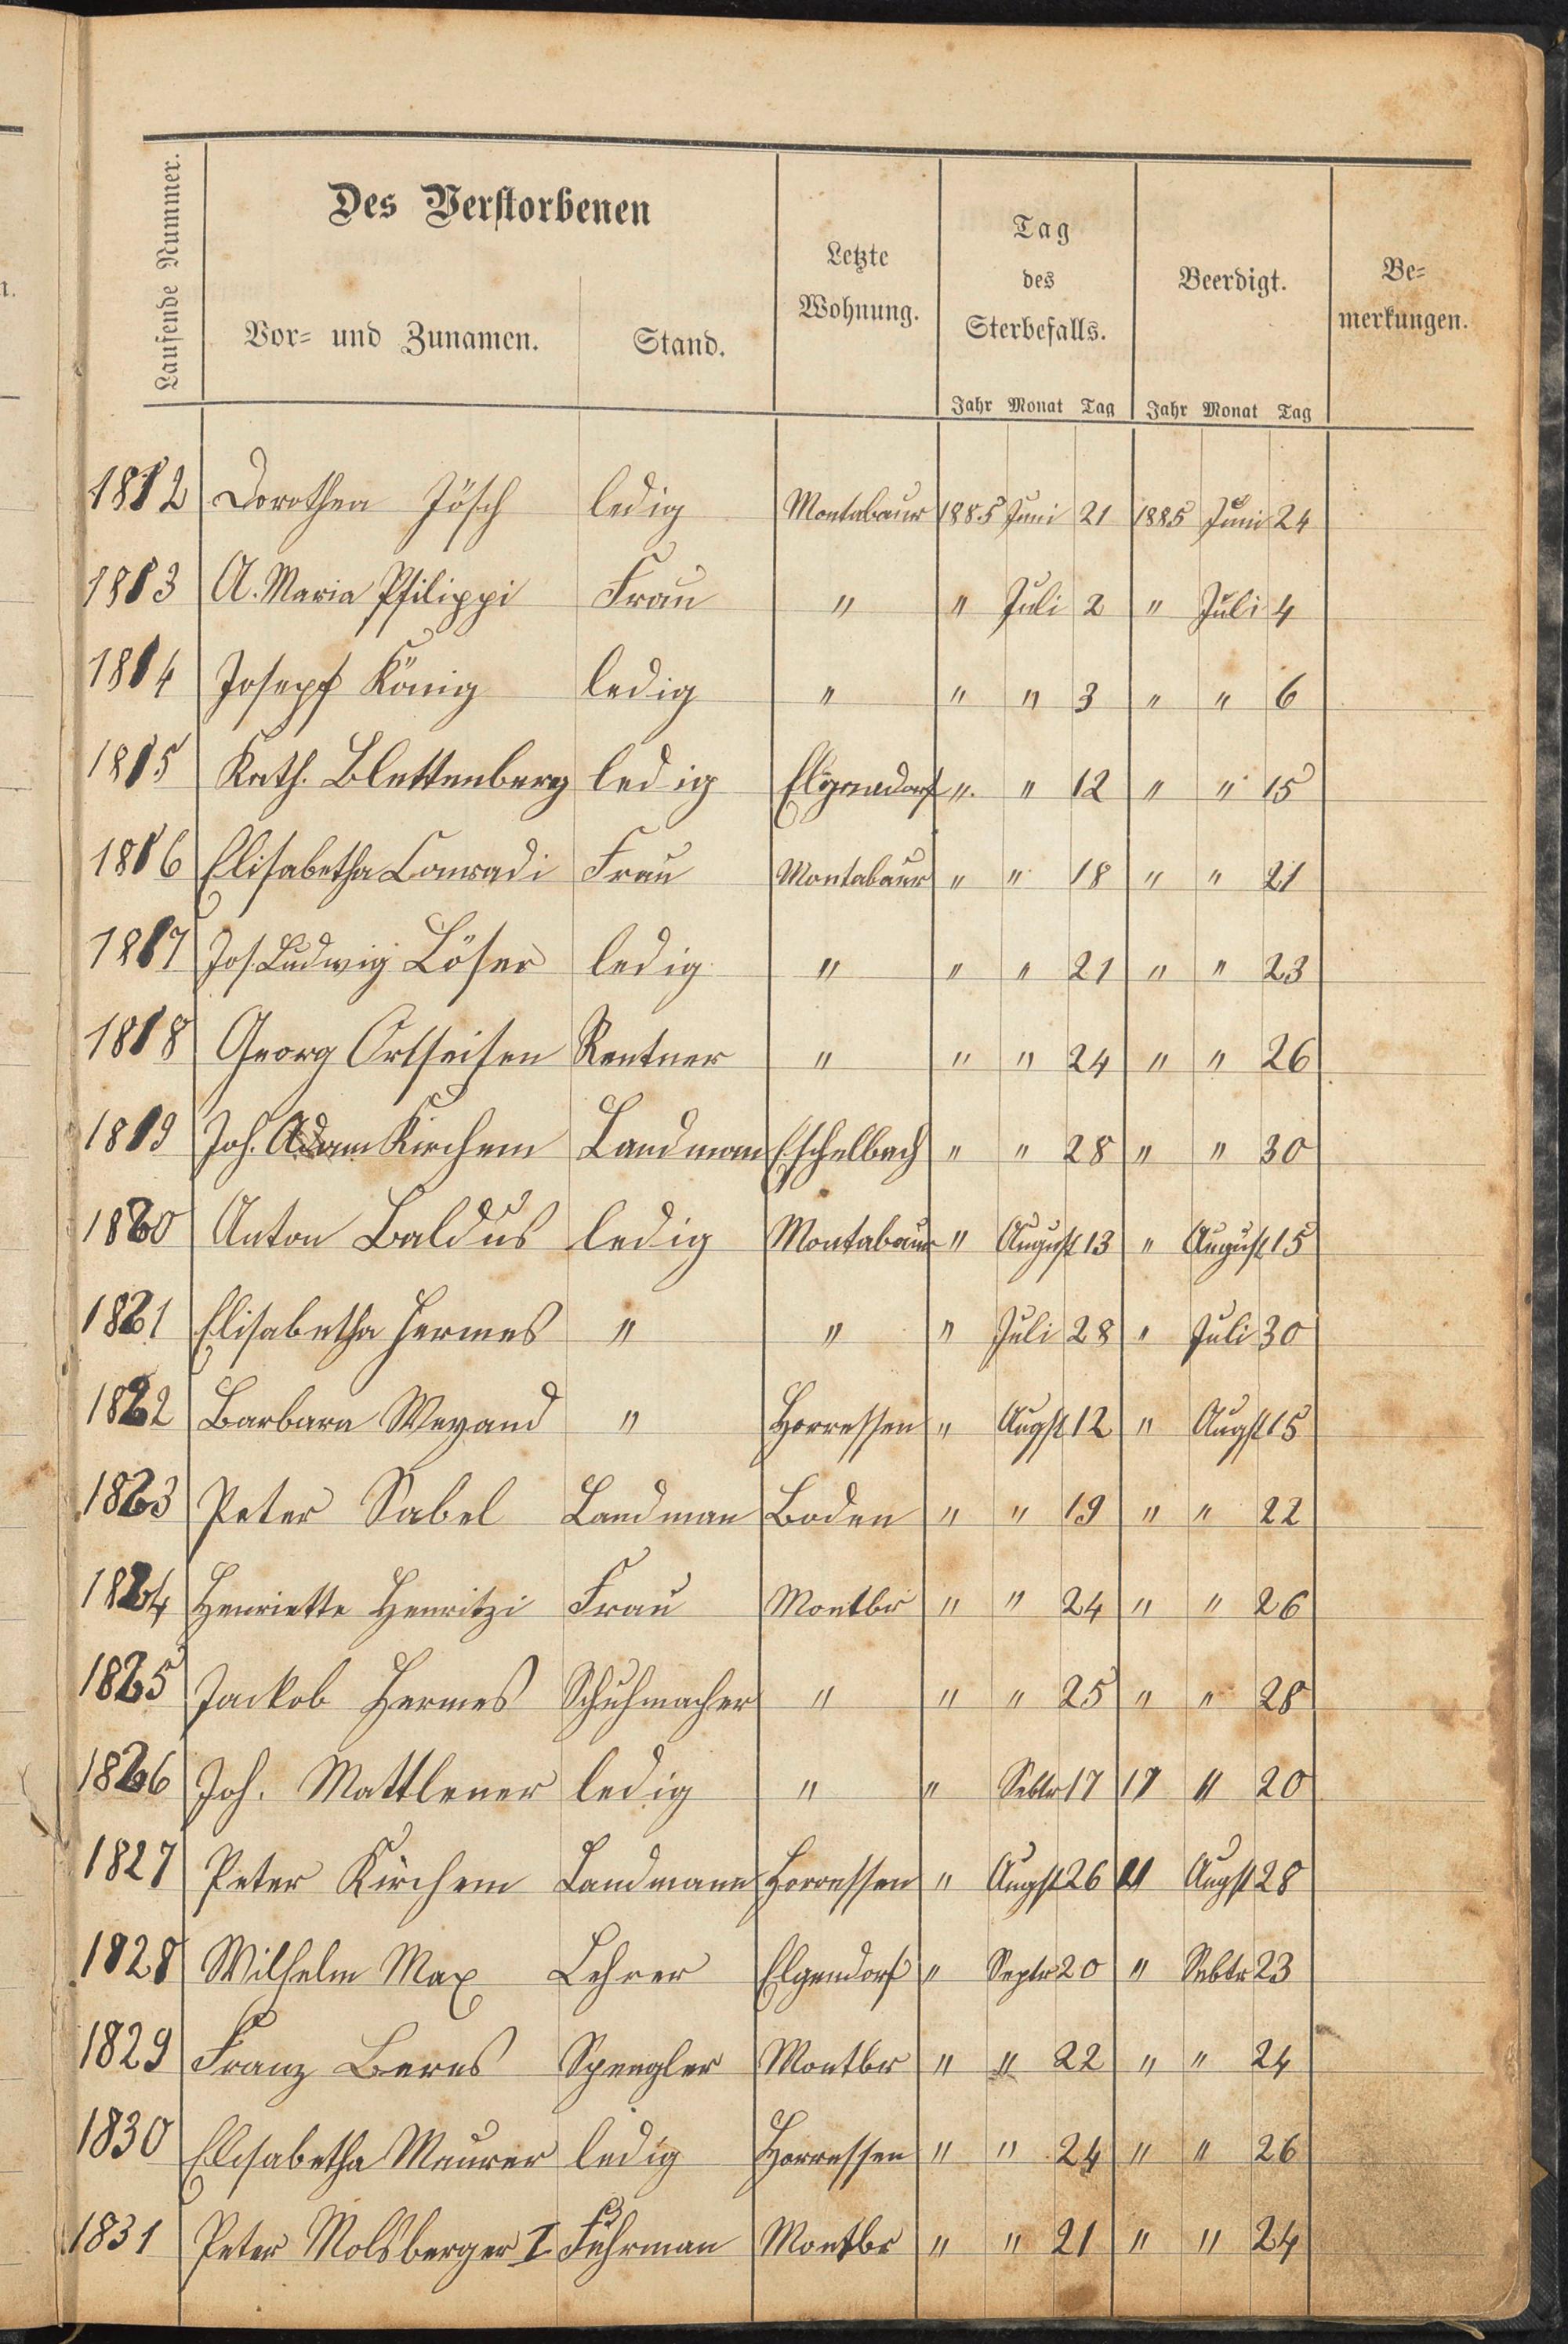 Laufende Nummer.
Des Verstorbenen
Vor- und Zunamen.
Stand.
Letzte
Wohnung.
Tag
des
Sterbefalls.
Beerdigt.
Be-
merkungen.
Jahr Monat Tag Jahr Monat Tag
1812 Dorothea Jösch ledig Montabaur 1885 Juni 21 1885 Juni 24
1813 A. Maria Philippi Frau " " Juli 2 " Juli 4
1814 Joseph König ledig " " " 3 " " 6
1815 Kath. Blettenberg ledig Elgendorf " " 12 " " 15
1816 Elisabetha Conradi Frau Montabaur " " 18 " " 21
1817 Jos. Ludwig Löser ledig " " " 21 " " 23
1818 Georg Ortseifen Rentner " " " 24 " " 26
1819 Joh. Adam Kirchem Landman Eschelbach " " 28 " " 30
1820 Anton Baldus ledig Montabaur " August 13 " August 15
1821 Elisabetha Hermes " " " Juli 28 " Juli 30
1822 Barbara Weyand " Horressen " Augst 12 " Augst 15
1823 Peter Sabel Landman Boden " " 19 " " 22
1824 Henriette Henritzi Frau Montbr " " 24 " " 26
1825 Jackob Hermes Schuhmacher " " " 25 " " 28
1826 Joh. Mattlener ledig " " Sebtr 17 17 " 20
1827 Peter Kirchem Landmann Horressen " Augst 26 " Augst 28
1828 Wilhelm Max Lehrer Elgendorf " Septr 20 " Sebtr 23
1829 Franz Beres Spengler Montbr " " 22 " " 24
1830 Elisabetha Meurer ledig Horressen " " 24 " " 26
1831 Peter Molsberger I Fuhrman Montbr " " 21 " " 24